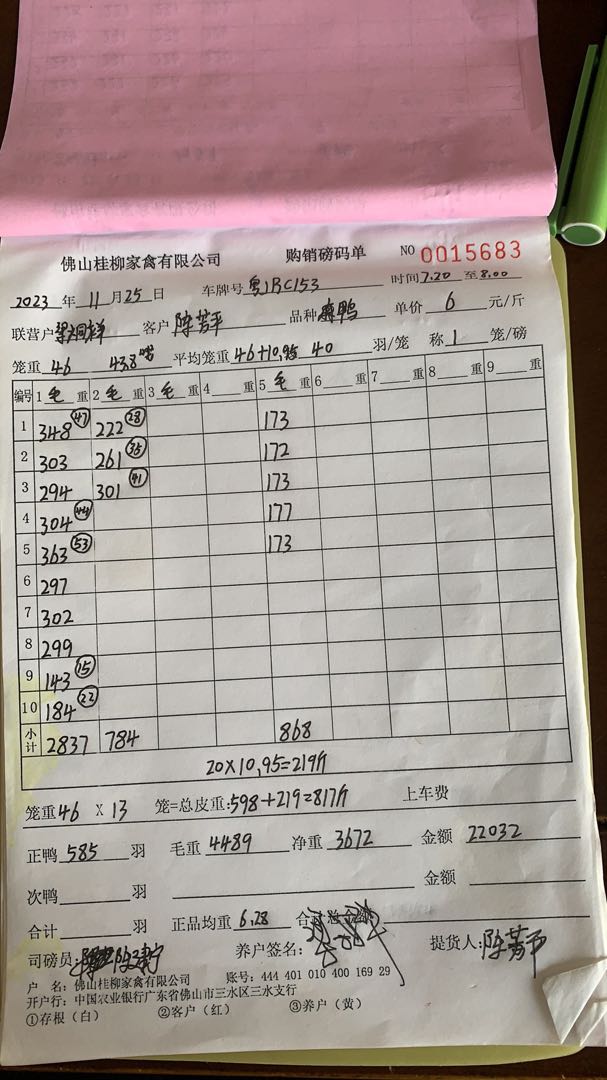 佛山桂柳家禽有限公司 购销磅码单 NO 0015683
2023 年 11 月 25 日 车牌号 粤1BC153 时间 7.20 至 8.00
联营户 客户 陈芳平 品种 麻鸭 单价 6 元/斤
笼重 46 43.8 平均笼重 46+10.95 40 羽/笼 称 1 笼/磅
编号 1 毛 重 2 毛 重 3 毛 重 4 重 5 毛 重 6 重 7 重 8 重 9 重
1 348 47 222 28 173
2 303 261 36 172
3 294 301 41 173
4 304 44 177
5 363 53 173
6 297
7 302
8 299
9 143 15
10 184 22
小计 2837 784 868
20×10.95=219斤
笼重 46 X 13 笼=总皮重: 598+219=817斤 上车费
正鸭 585 羽 毛重 4489 净重 3672 金额 22032
次鸭 羽 金额
合计 羽 正品均重 6.28 合计总金额
司磅员 养户签名: 提货人: 陈芳平
户 名: 佛山桂柳家禽有限公司 账号: 444 401 010 400 169 29
开户行: 中国农业银行广东省佛山市三水区三水支行
①存根(白) ②客户(红) ③养户(黄)